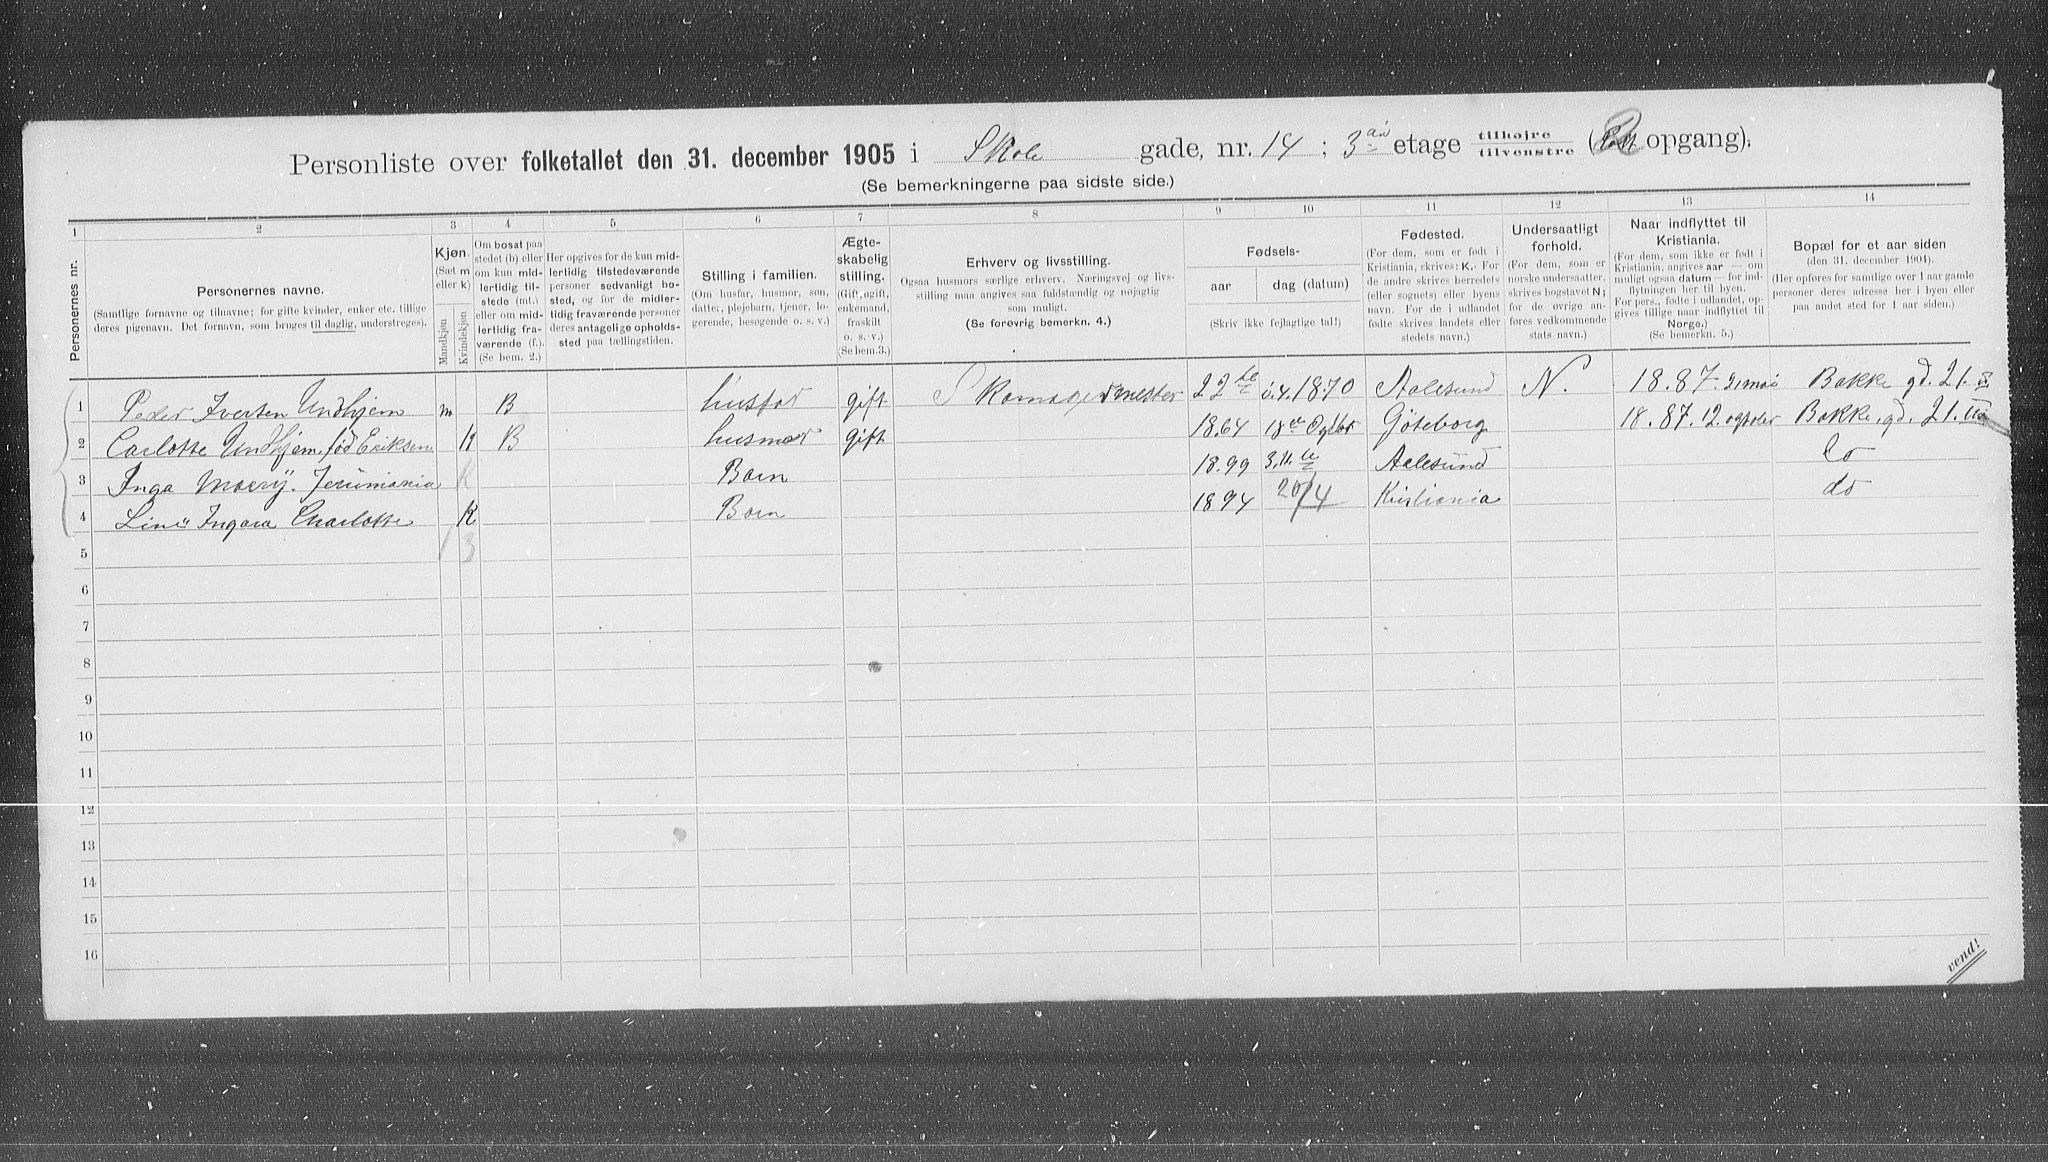 Personliste over folketallet den 31. december 1905 i Skole gade, nr. 14 ; 3 etage tilhøjre tilvenstre ( opgang).
(Se bemerkningerne paa sidste side.)
1 2 3 4 5 6 7 8 9 10 11 12 13 14
Personernes nr.
Personernes navne.
(Samtlige fornavne og tilnavne; for gifte kvinder, enker etc. tillige deres pigenavn. Det fornavn, som bruges til daglig, understreges).
Kjøn. (Sæt m eller k)
Mandkjøn
Kvindekjøn
Om bosat paa stedet (b) eller om kun midlertidig tilstede (mt.) eller om midlertidig fraværende (f.). (Se bem. 2.)
Her opgives for de kun midlertidig tilstedeværende personer sedvanligt bosted, og for de midlertidig fraværende personer deres antagelige opholdssted paa tællingstiden.
Stilling i familien.
(Om husfar, husmor, søn, datter, plejebarn, tjener, logerende, besøgende o. s. v.)
Ægteskabelig stilling.
(Gift, ugift, enkemand, fraskilt o. s. v.) (Se bem.3.)
Erhverv og livsstilling.
Ogsaa husmors særlige erhverv. Næringsvej og livsstilling maa angives saa fuldstændig og nøjagtig som muligt.
(Se forøvrig bemerkn. 4.)
Fødsels-
aar
dag (datum)
(Skriv ikke fejlagtige tal!)
Fødested.
(For dem, som er født i Kristiania, skrives: K. For de andre skrives herredets (eller sognets) eller byens navn. For de i udlandet fødte skrives landets eller stedets navn.)
Undersaatligt forhold.
(For dem, som er norske undersaatter, skrives bogstavet N; for de øvrige anføres vedkommende stats navn.)
Naar indflyttet til Kristiania.
(For pers., som ikke er født i Kristiania, angives aar — om muligt ogsaa datum — for indflytningen her til byen. For pers., fødte i udlandet, opgives tillige naar indflyttet til Norge.)
(Se bemerkn. 5.)
Bopæl for et aar siden
(den 31. december 1904).
(Her opføres for samtlige over 1 aar gamle personer deres adresse her i byen eller andet sted for 1 aar siden.)
1 Peder Iversen Undhjem m B husfar gift Skomagermester 22de 4. 1870 Aalesund N. 1887 21 mai Bakke gd. 21. II
2 Carlotte Undhjem, fød Eriksen K B husmor gift 1864 18de Göteborg 1887. 12. Bakke gd. 21. III
3 Inga k Barn 1899 3. 11. te Aalesund do
4 Ingara Charlotte K Barn 1894 20/4 Kristiania do
5 1 3
6
7
8
9
10
11
12
13
14
15
16
vend!